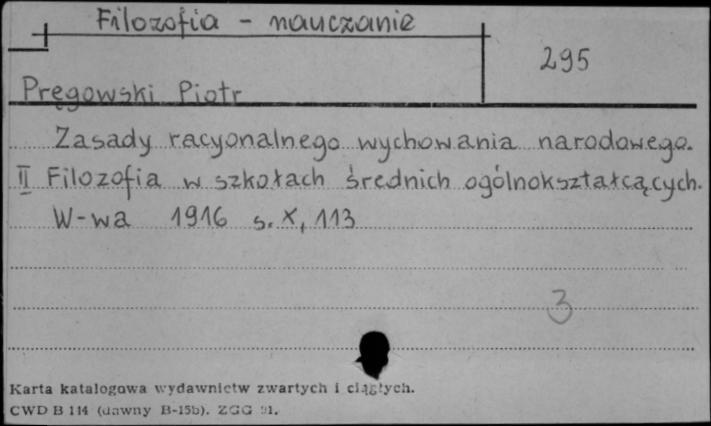 Filozofia - nauczanie
295
Pręgowski Piotr
Zasady racyonalnego wychowania narodowego.
II Filozofia w szkołach średnich ogólnokształcących.
W-wa 1916 s. X, 113
3
Karta katalogowa wydawnictw zwartych i ciągłych.
CWD B 114 (dawny B-15b). ZGG